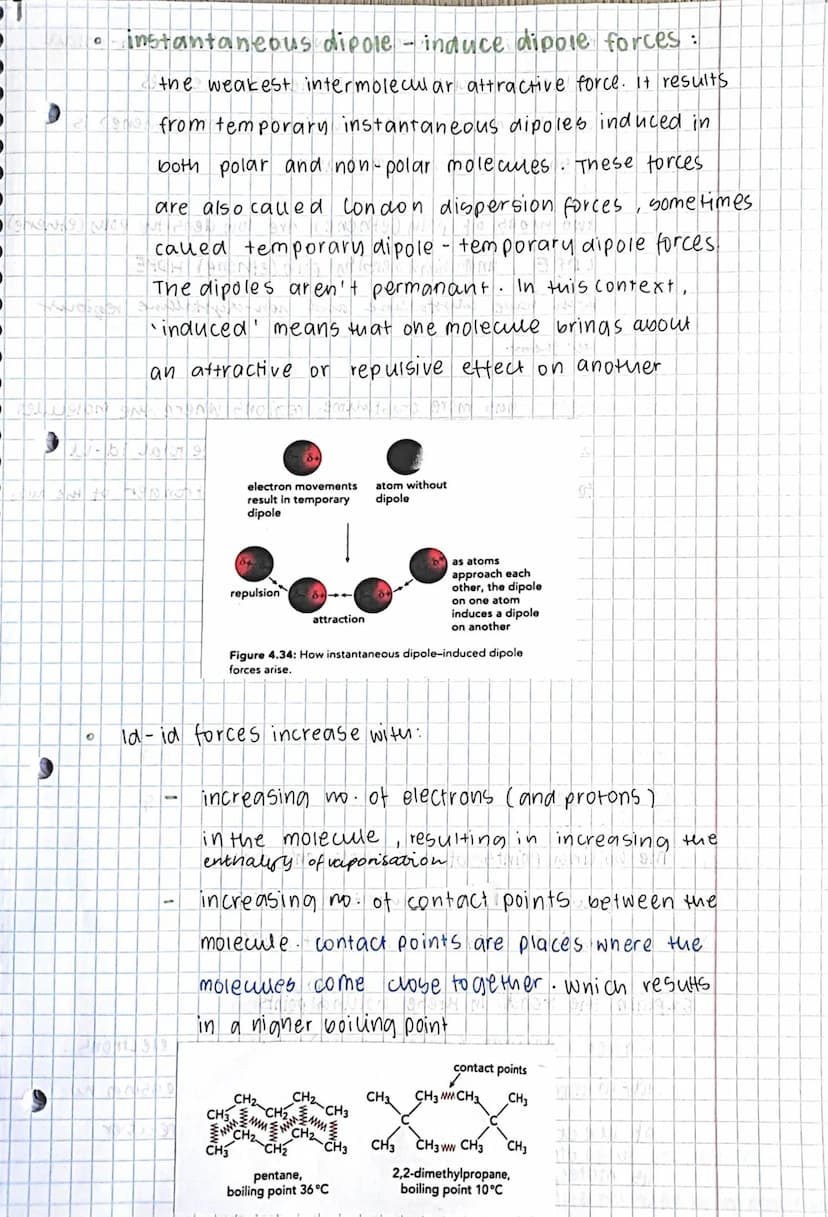 instantaneous dipole - induce dipole forces :
the weakest intermolecular attractive force. It results
from temporary instantaneous dipoles induced in
both polar and non-polar molecules. These forces
are also called London dispersion forces, sometimes
called temporary dipole - temporary dipole forces.
The dipoles aren't permanant. In this context,
'induced' means that one molecule brings about
an attractive or repulsive effect on another
δ+
electron movements
result in temporary
dipole
atom without
dipole
δ+
repulsion
δ+
δ+
attraction
as atoms
approach each
other, the dipole
on one atom
induces a dipole
on another
Figure 4.34: How instantaneous dipole–induced dipole
forces arise.
Id-id forces increase with:
- increasing no. of electrons (and protons)
in the molecule, resulting in increasing the
enthalpy of vaporisation
- increasing no. of contact points between the
molecule. contact points are places where the
molecules come close together. which results
in a higher boiling point
CH3 CH2 CH2 CH2 CH3
CH3 CH2 CH2 CH2 CH3
pentane,
boiling point 36 °C
contact points
CH3 CH3 CH3 CH3
C C
CH3 CH3 CH3 CH3
2,2-dimethylpropane,
boiling point 10 °C